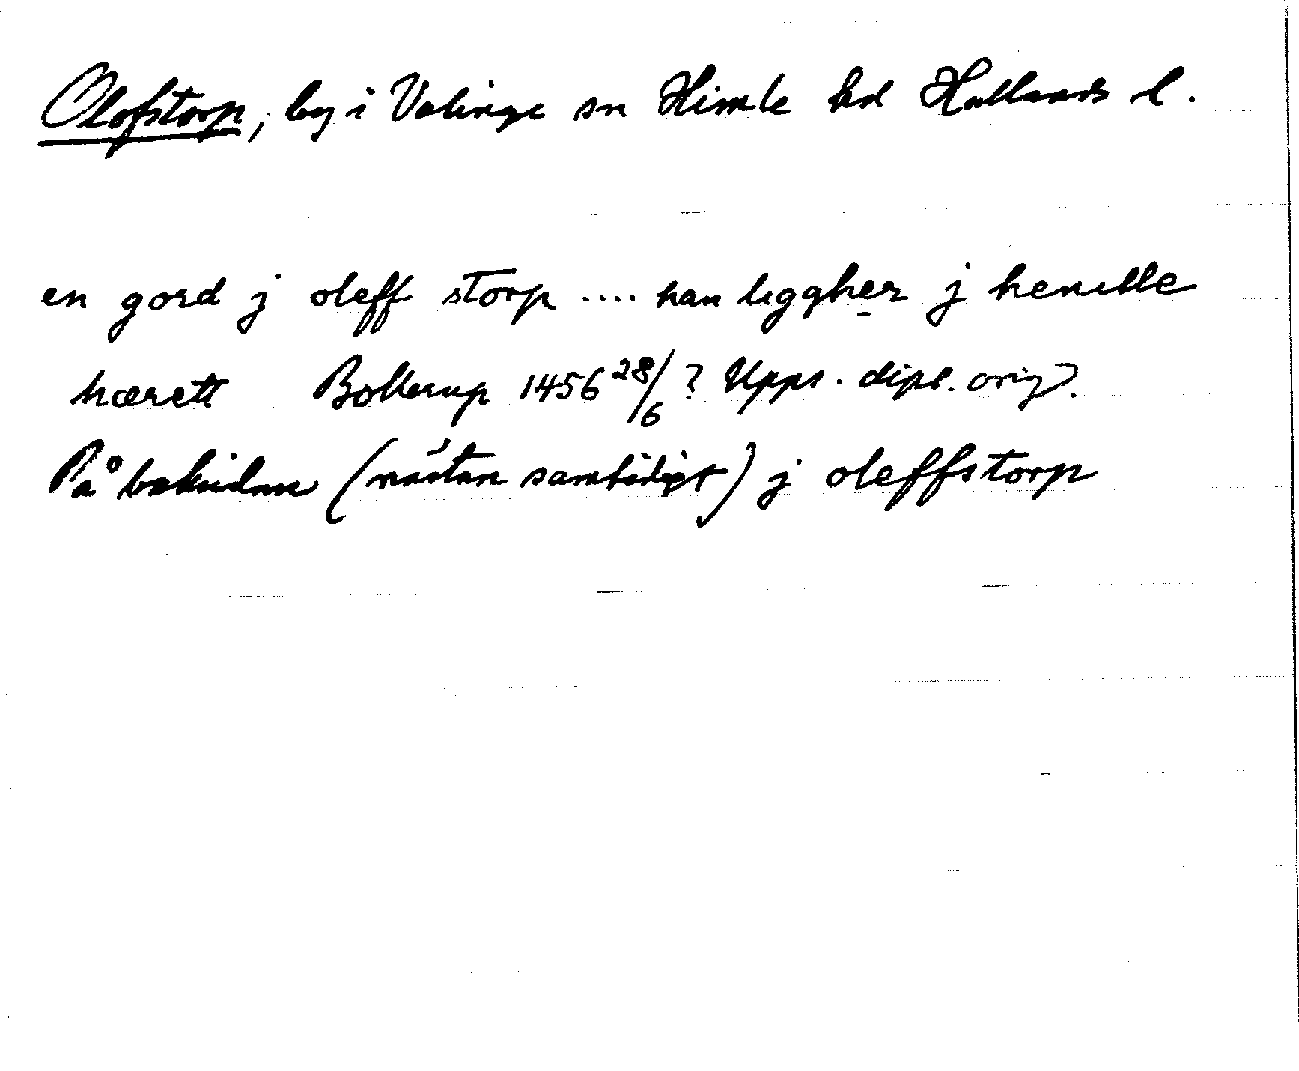 Olofstorp, by i Valinge sn Himle hd Hallands l.
en gord j oleff storp .... han liggher j hemble
hærett Bollerup 1456 28/6? Upps. dipl. orig.
På baksidan (nästan samtidigt) j oleffstorp